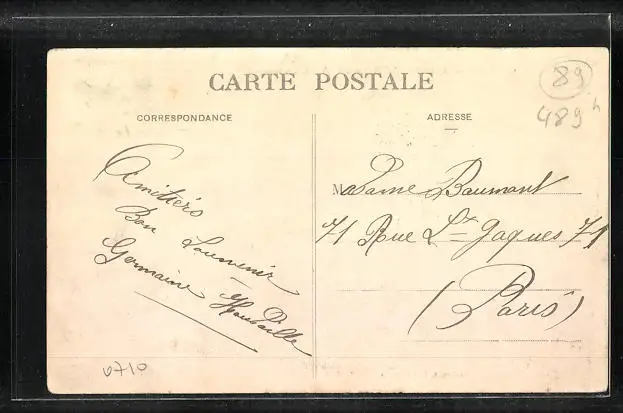 CARTE POSTALE
89
489 h
CORRESPONDANCE
ADRESSE
Amitiérs
Bon Souvenir
Germaine
Madame Baumant
71 Rue St Jaques 71
(Paris)
0710